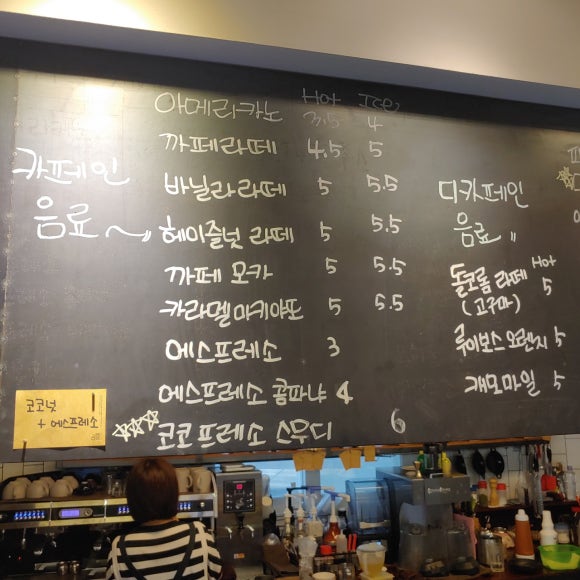 카페인
음료
Hot Ice
아메리카노 3.5 4
까페라떼 4.5 5
바닐라라떼 5 5.5
헤이즐넛 라떼 5 5.5
까페 모카 5 5.5
카라멜마키야또 5 5.5
에스프레소 3
에스프레소 콤파냐 4
코코프레소 스무디 6
코코넛 1
+ 에스프레소
디카페인
음료
Hot
돌코롬 라떼 5
(고구마)
루이보스 오렌지 5
캐모마일 5